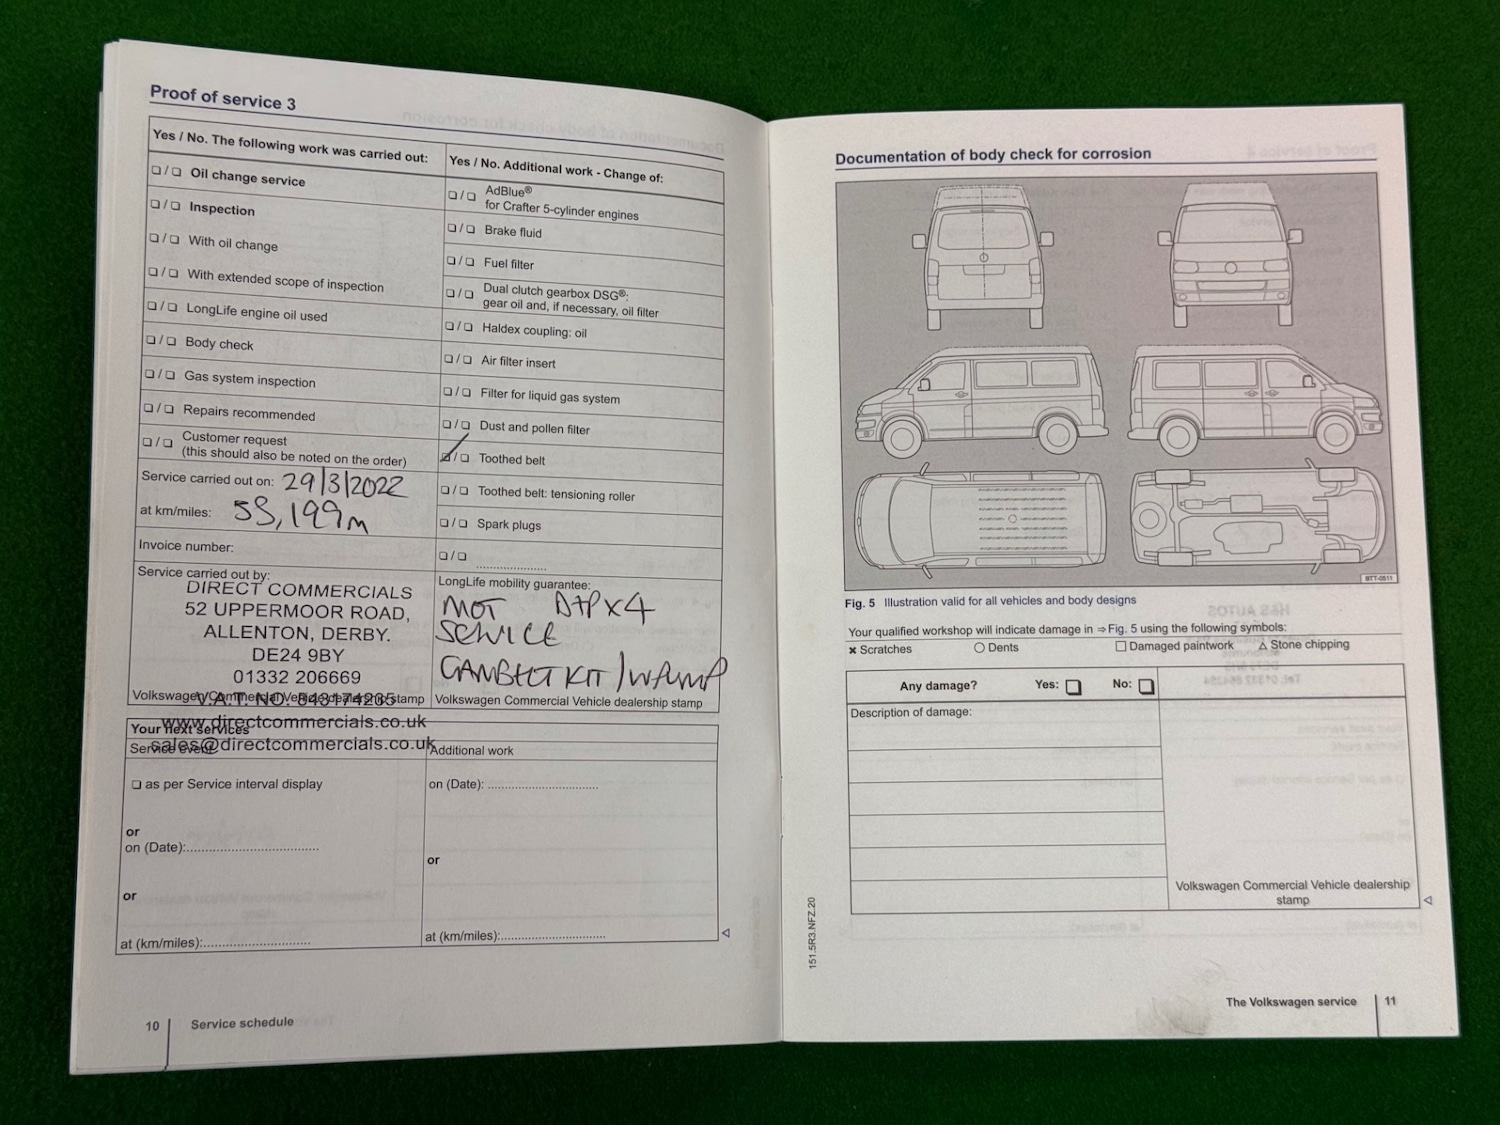 Proof of service 3
Yes / No. The following work was carried out:
❑ / ❑ Oil change service
❑ / ❑ Inspection
❑ / ❑ With oil change
❑ / ❑ With extended scope of inspection
❑ / ❑ LongLife engine oil used
❑ / ❑ Body check
❑ / ❑ Gas system inspection
❑ / ❑ Repairs recommended
❑ / ❑ Customer request
(this should also be noted on the order)
Service carried out on: 29/3/2022
at km/miles:
Invoice number:
Service carried out by:
DIRECT COMMERCIALS
52 UPPERMOOR ROAD,
ALLENTON, DERBY.
DE24 9BY
01332 206669
V.A.T. NO. 843174265
www.directcommercials.co.uk
sales@directcommercials.co.uk
Volkswagen Commercial Vehicle dealership stamp
Yes / No. Additional work - Change of:
❑ / ❑ AdBlue®
for Crafter 5-cylinder engines
❑ / ❑ Brake fluid
❑ / ❑ Fuel filter
❑ / ❑ Dual clutch gearbox DSG®:
gear oil and, if necessary, oil filter
❑ / ❑ Haldex coupling: oil
❑ / ❑ Air filter insert
❑ / ❑ Filter for liquid gas system
❑ / ❑ Dust and pollen filter
❑ / ❑ Toothed belt
❑ / ❑ Toothed belt: tensioning roller
❑ / ❑ Spark plugs
❑ / ❑ ....................
LongLife mobility guarantee:
MOT
SERVICE
CAMBELT KIT / W/PUMP
Volkswagen Commercial Vehicle dealership stamp
Your next services
Service event
❑ as per Service interval display
or
on (Date):....................
or
at (km/miles):....................
Additional work
on (Date): ....................
or
at (km/miles):....................
10 Service schedule
Documentation of body check for corrosion
BTT-0511
Fig. 5 Illustration valid for all vehicles and body designs
Your qualified workshop will indicate damage in ⇒ Fig. 5 using the following symbols:
✖ Scratches ○ Dents □ Damaged paintwork △ Stone chipping
Any damage? Yes: ❑ No: ❑
Description of damage:
Volkswagen Commercial Vehicle dealership
stamp
151.5R3.NFZ.20
The Volkswagen service 11